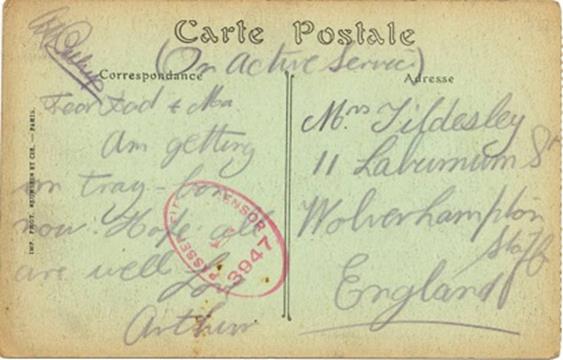 Carte Postale
(On Active Service)
Correspondance
Adresse
Dear Dad & Ma
Am getting
on tray-bon
now. Hope all
are well
Arthur
Mrs Tildesley
11 Laburnum St
Wolverhampton
Staffs
England
PASSED CENSOR
3947
IMP. PHOT. NEURDEIN ET CIE. — PARIS.